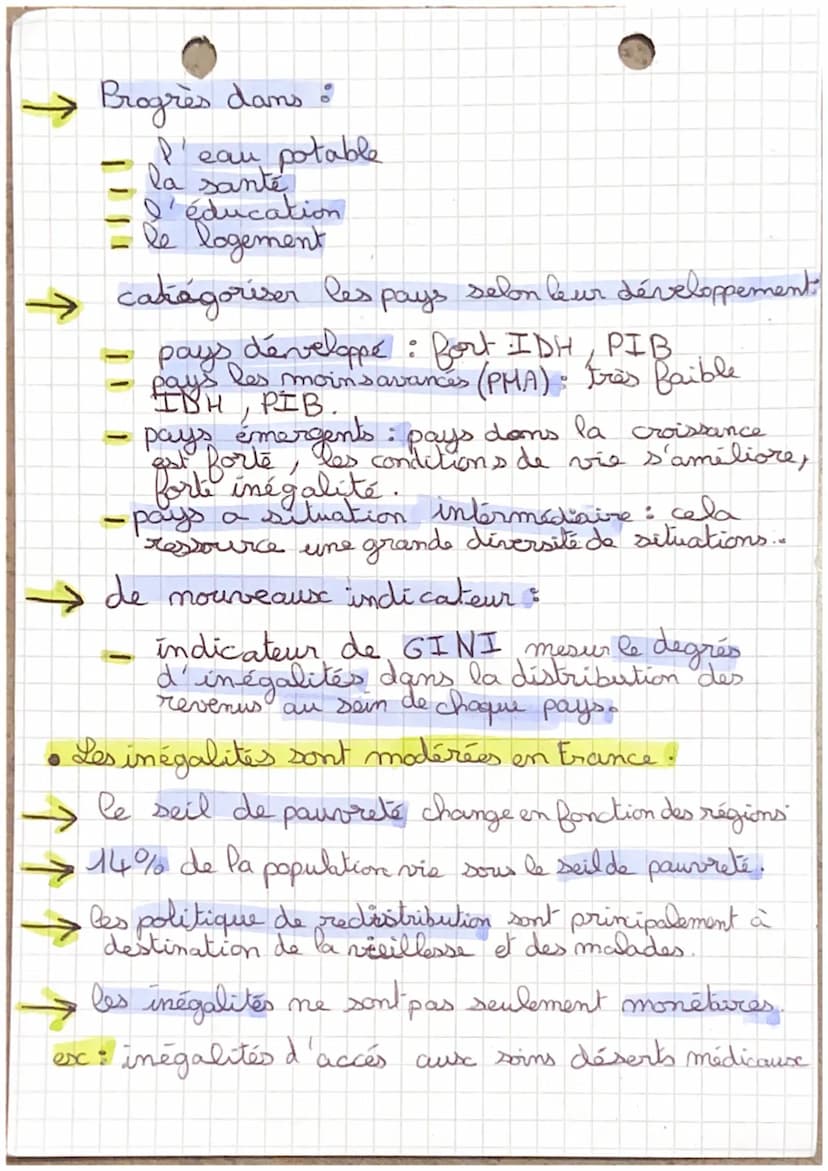 → Progrès dans :
- l'eau potable
- la santé
- l'éducation
- le logement
→ catégoriser les pays selon leur développement:
- pays développé : fort IDH, PIB
- pays les moins avancés (PMA) : très faible
IDH, PIB.
- pays émergents : pays dans la croissance
est forte, les conditions de vie s'améliore,
forte inégalité.
- pays a situation intermédiaire : cela
ressource une grande diversité de situations...
→ de nouveaux indicateur :
- indicateur de GINI mesur le degrés
d'inégalités dans la distribution des
revenus au sein de chaque pays.
• Les inégalités sont modérées en France.
→ le seil de pauvreté change en fonction des régions
→ 14% de la population vie sous le seil de pauvreté.
→ les politique de redistribution sont principalement à
destination de la vieillesse et des malades.
→ les inégalités ne sont pas seulement monétaires.
ex : inégalités d'accés aux soins déserts médicaux